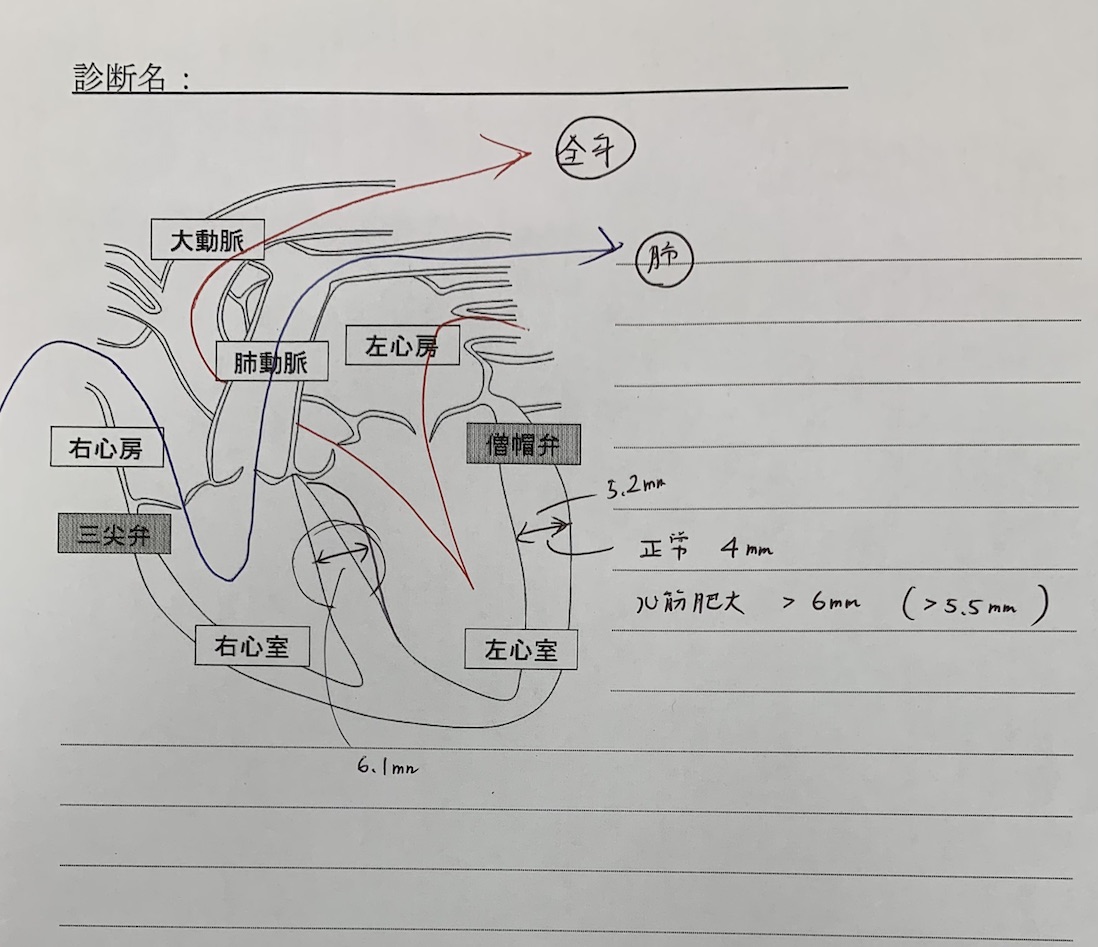 診断名：
全身
大動脈
肺
左心房
肺動脈
右心房
僧帽弁
5.2mm
三尖弁
正常 4mm
心筋肥大 > 6mm (>5.5mm)
右心室
左心室
6.1mm